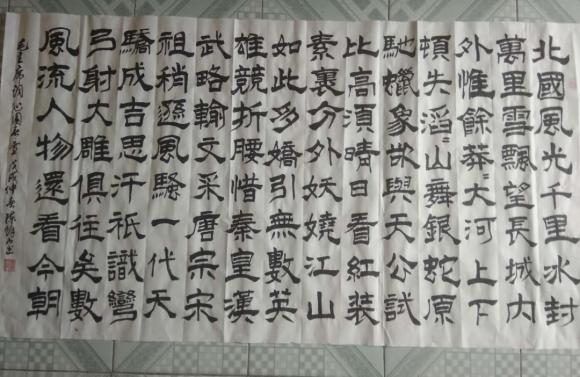 北國風光千里冰封
萬里雪飄望長城内
外惟餘莽〻大河上下
頓失滔〻山舞銀蛇原
馳蠟象欲與天公試
比高須晴日看紅装
素裹分外妖嬈江山
如此多嬌引無數英
雄競折腰惜秦皇漢
武略輸文采唐宗宋
祖稍遜風騷一代天
驕成吉思汗祇識彎
弓射大雕俱往矣數
風流人物還看今朝
毛主席詞沁園春雪戊戌仲春陳